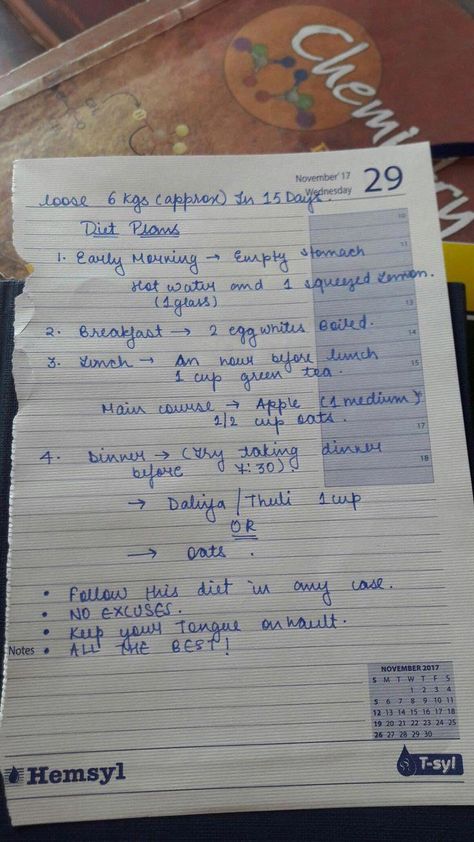 Chemistry
November'17
Wednesday 29
loose 6 Kgs (approx) In 15 Days.
Diet Plans
10
11
1. Early Morning → Empty stomach
Hot water and 1 squeezed Lemon.
(1 glass)
13
2. Breakfast → 2 egg whites Boiled.
14
3. Lunch → An hour before lunch
15
1 cup green tea.
Main course → Apple (1 medium)
1/2 cup oats.
17
4. Dinner → (Try taking dinner
before 7:30).
18
→ Daliya / Thuli 1 cup
OR
→ oats.
• Follow this diet in any case.
• NO EXCUSES.
• Keep your Tongue on hault.
Notes • ALL THE BEST!
NOVEMBER 2017
S M T W T F S
1 2 3 4
5 6 7 8 9 10 11
12 13 14 15 16 17 18
19 20 21 22 23 24 25
26 27 28 29 30
Hemsyl
T-syl